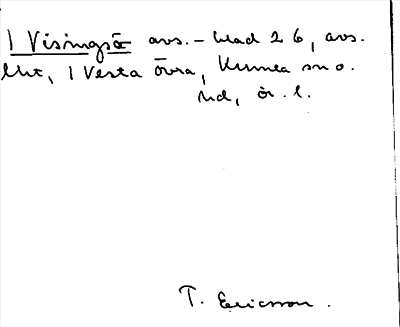 1 Visingsö avs. - blad 26, avs.
litt, 1 Vesta övra, Kumla sn o.
hd, ör. l.
T. Ericsson.